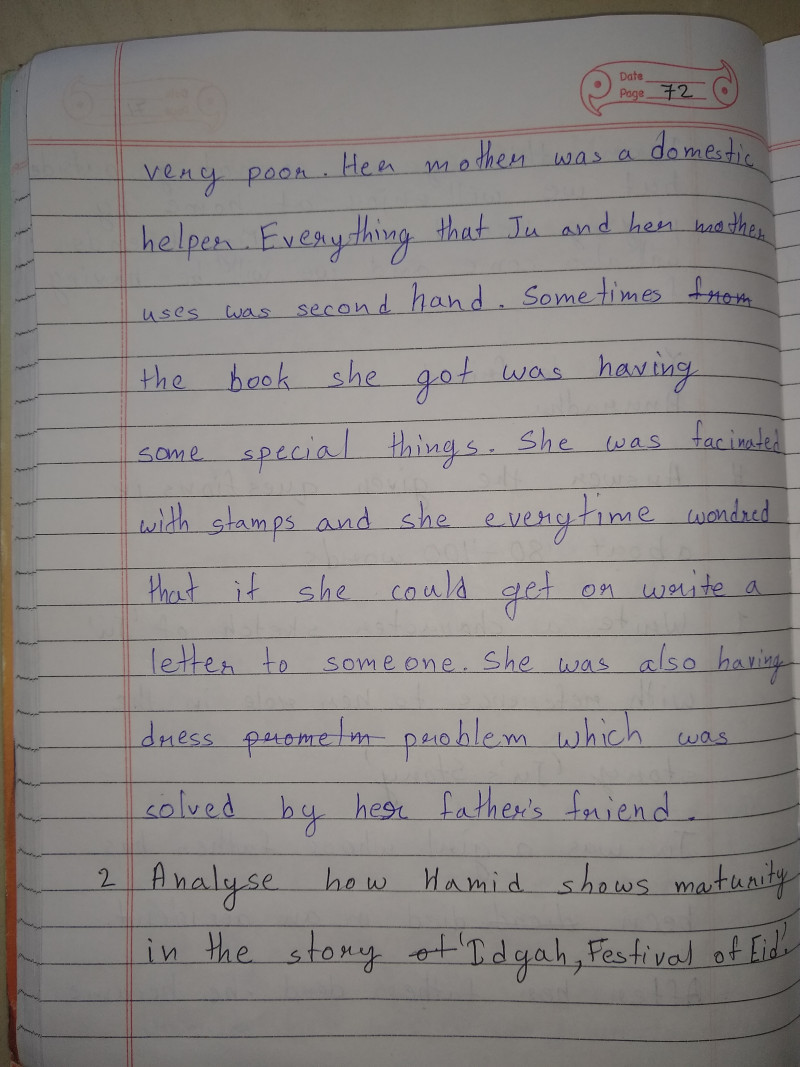 Date
Page 72
very poor. Her mother was a domestic
helper. Everything that Ju and her mother
uses was second hand. Sometimes from
the book she got was having
some special things. She was facinated
with stamps and she everytime wondred
that if she could get or write a
letter to someone. She was also having
dress prometm problem which was
solved by her father's friend.
2 Analyse how Hamid shows maturity
in the story of 'Idgah, Festival of Eid'.